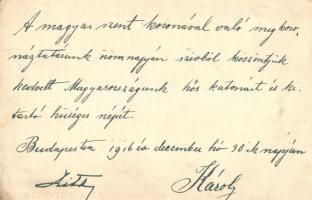 A magyar szent koronával való megkoro-
náztatásunk örömnapján szívből köszöntjük
kedvelt Magyarországunk hős katonáit és ki-
tartó hűséges népét.
Budapesten 1916 év december hó 30-ik napján
Zita Károly